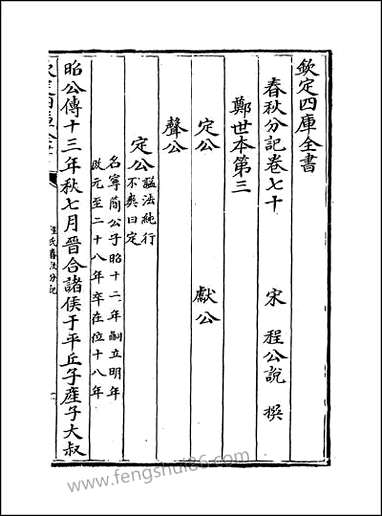 欽定四庫全書
春秋分記卷七十
宋 程公說 撰
鄭世本第三
定公 獻公
聲公
定公 諡法純行
不爽曰定
名寧簡公子昭十二年嗣立明年
改元至二十八年卒在位十八年
昭公傳十三年秋七月晉合諸侯于平丘子產子大叔
www.fengshui86.com